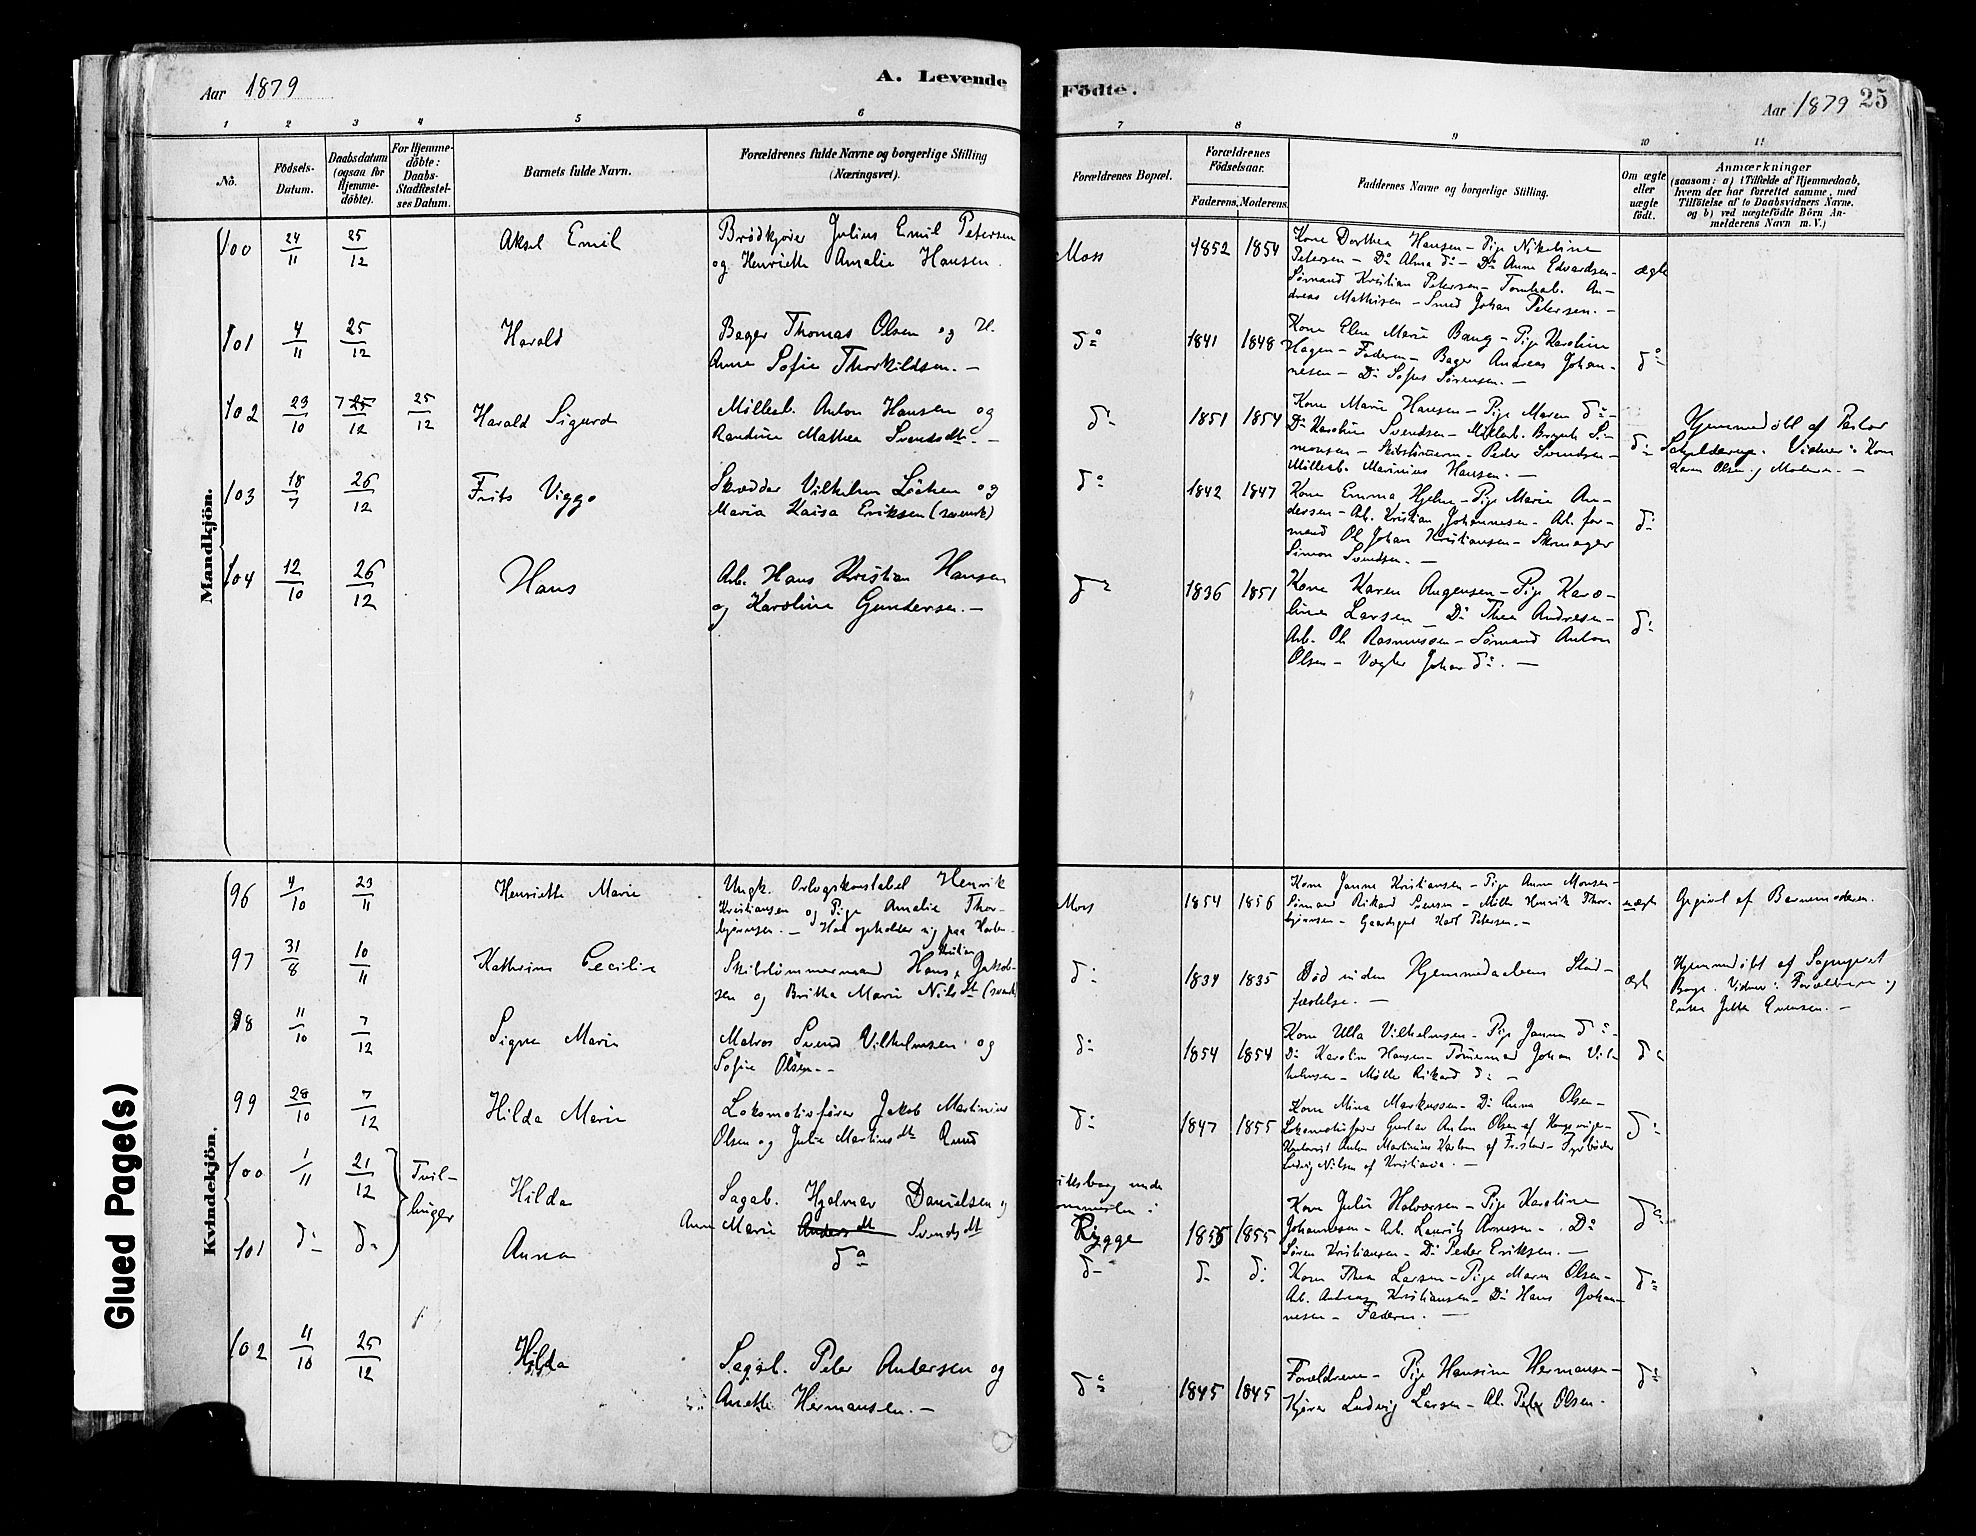 Aar 1879
A. Levende
Födte.
Aar 1879 25
1 2 3 4 5 6 7 8 9 10 11
No.
Födsels-
Datum.
Daabsdatum
(ogsaa for
Hjemme-
döbte).
For Hjemme-
döbte:
Daabs-
Stadfæstel-
ses Datum.
Barnets fulde Navn.
Forældrenes fulde Navne og borgerlige Stilling
(Næringsvei).
Forældrenes Bopæl.
Forældrenes
Födselsaar.
Faderens. Moderens.
Faddernes Navne og borgerlige Stilling.
Om ægte
eller
uægte
födt.
Anmærkninger
(saasom: a) i Tilfælde af Hjemmedaab,
hvem der har forrettet samme, med
Tilföielse af to Daabsvidners Navne,
og b) ved uægtefödte Börn An-
melderens Navn m. V.)
Mandkjön.
100 24/11 25/12 Aksel Emil
Brödkjører Julius Emil Petersen
og Henriette Amalie Hansen.
Moss 1852 1854
Kone Dorthea Hansen - Pige Nikoline
Petersen - Do Alma do - Do Anna Edvardsen -
Sømand Kristian Petersen - Tomtearb. An-
dreas Mathisen - Smed Johan Petersen. -
ægte
101 4/11 25/12 Harald
Bager Thomas Olsen og H.
Anne Sofie Thorkildsen. -
do 1841 1848
Kone Elen Marie Bang - Pige Karoline
Hagen - Faderen - Bager Andreas Johan-
nesen - Do Sofus Sørensen. -
do
102 23/10 7 25/12 25/12 Harald Sigurd
Møllearb. Anton Hansen og
Randine Mathea Svendsdtr. -
do 1851 1854
Kone Marie Hansen - Pige Maren do -
Do Karoline Svendsen - Møllearb. Si-
monsen - Skibstømmerm. Peder Svendsen -
Møllearb. Marinius Hansen. -
do
Hjemmedøbt af Pastor
Vidner: Kone
Karen Olsen og Moderen. -
103 18/7 26/12 Frits Viggo
Skrædder Vilhelm Löchen og
Maria Kaisa Eriksen (svensk)
do 1842 1847
Kone Emma Hjelm - Pige Marie An-
dersen - Arb. Kristian Johannesen - Arb. for-
mand Ole Johan Kristiansen - Skomager
Simon Svendsen. -
do
104 12/10 26/12 Hans
Arb. Hans Kristian Hansen
og Karoline Gundersen. -
do 1836 1851
Kone Karen Augensen - Pige Karo-
line Larsen - Do Thea Andresen -
Arb. Ole Rasmussen - Sømand Anton
Olsen - Vægter Johan do. -
do
Kvindekjön.
96 4/10 23/11 Henriette Marie
Ungk. Orlogskonstabel Henrik
Kristiansen og Pige Amalie Thor-
bjørnsen. - Han opholder sig paa Horten
Moss 1854 1856
Kone Janna Kristiansen - Pige Anna Monsen -
Sømand Rikard Svensen - Møller Henrik Thor-
bjørnsen - Gaardsgut Karl Petersen. -
uægte
Opgivet af Barnemoderen.
97 31/8 10/11 Kathrine Cecilie
Skibstømmermand Hans Kristian Jakob-
sen og Britha Marie Nilsdtr (svensk)
do 1834 1835
Død inden Hjemmedaabens Stad-
fæstelse. -
ægte
Hjemmedøbt af Sogneprest
Vidner: Forældrene og
Enke Jette Evensen. -
98 11/10 7/12 Signe Marie
Matros Svend Vilhelmsen og
Sofie Olsen. -
do 1854 1854
Kone Ulla Vilhelmsen - Pige Janna do -
Do Karoline Hansen - Tømmermand Johan Vil-
helmsen - Møller Rikard do -
do
99 28/10 7/12 Hilda Marie
Lokomotivfører Jakob Martinius
Olsen og Julie Martinsdtr Ruud
do 1847 1855
Kone Mina Markussen - Do Anna Olsen -
Lokomotivfører Gustav Anton Olsen af Kongsvinger -
Kontorist Anton Martinius Karlsen af Fr.stad - Fyrbøder
Ludvig Nilsen af Kristiania. -
do
100 1/11 21/12 Tvil-
linger Hilda
Sagarb. Hjalmar Danielsen og
Anne Marie Andersdtr Svendsdtr
Rygge 1855 1855
Kone Julie Halvorsen - Pige Karoline
Johannesen - Arb. Lauritz Arnesen - Do
Søren Kristiansen - Do Peder Eriksen. -
do
101 do do Anna
do
do do do
Kone Thea Larsen - Pige Maren Olsen -
Arb. Andreas Kristiansen - Do Hans Johan-
nesen - Faderen. -
do
102 11/10 25/12 Hilda
Sagarb. Peter Andersen og
Anette Hermansen. -
do 1845 1845
Forældrene - Pige Hansine Hermansen -
Kjører Ludvig Larsen - Arb. Peter Olsen.
do
Glued Page(s)